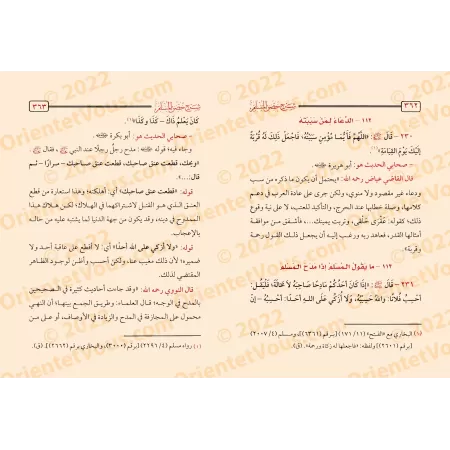 ٣٦٢
شرح حصن المسلم
١١٢ - الدُّعَاءُ لِمَنْ سَبَبْتَهُ
٢٣٠ - قَالَ ﷺ: «اللَّهُمَّ فَأَيُّمَا مُؤْمِنٍ سَبَبْتُهُ، فَاجْعَلْ ذَلِكَ لَهُ قُرْبَةً
إِلَيْكَ يَوْمَ القِيَامَةِ»(١).
- صحابي الحديث هو: أبو هريرة ﷺ.
قال القاضي عياض رحمه الله: «يحتمل أن يكون ما ذكره من سب
ودعاء غير مقصود ولا منوي، ولكن جرى على عادة العرب في دعم
كلامها، وصلة خطابها عند الحرج، والتأكيد للعتب، لا على نية وقوع
ذلك؛ كقوله: عقرى حلقى، وتربت يمينك... فأشفق من موافقة
أمثالها القدر، فعاهد ربه ورغب إليه أن يجعل ذلك القول رحمة
وقربة».
١١٣ - ما يَقُولُ المُسْلِمُ إذا مدحَ المُسْلِمَ
٢٣١ - قَالَ ﷺ: «إِذَا كَانَ أَحَدُكُمْ مَادِحاً صَاحِبَهُ لَا مَحَالَةَ، فَلْيَقُلْ:
أَحْسِبُ فُلَاناً، وَاللَّهُ حَسِيبُهُ، وَلَا أُزَكِّي عَلَى اللَّهِ أَحَداً، أَحْسِبُهُ - إِنْ
(١) البخاري مع «الفتح» (١١/ ١٧١) [برقم (٦٣٦١)]، ومسلم (٤/ ٢٠٠٧)
[برقم (٢٦٠١)] ولفظه: «فاجعلها له زكاة ورحمة». (ق).
شرح حصن المسلم
٣٦٣
كَانَ يَعْلَمُ ذَاكَ - كَذَا وكَذَا»(١).
- صحابي الحديث هو: أبو بكرة ﷺ.
وجاء فيه؛ قوله ﷺ: مدح رجلٌ رجلاً عند النبي ﷺ، فقال:
«ويحك، قطعت عنق صاحبك، قطعت عنق صاحبك - مراراً - ثم
قال...».
قوله: «قطعت عنق صاحبك» أي: أهلكته؛ وهذا استعارة من قطع
العنق الذي هو القتل لاشتراكهما في الهلاك؛ لكن هلاك هذا
الممدوح في دينه، وقد يكون من جهة الدنيا لما يشتبه عليه من حاله
بالإعجاب.
قوله: «ولا أزكي على الله أحداً» أي: لا أقطع على عاقبة أحد ولا
ضميره؛ لأن ذلك مغيب عنا، ولكن أحسب وأظن لوجود الظاهر
المقتضي لذلك.
قال النووي رحمه الله: «وقد جاءت أحاديث كثيرة في الصحيحين
بالمدح في الوجه؛ قال العلماء: وطريق الجمع بينها؛ أن النهي
محمول على المجازفة في المدح والزيادة في الأوصاف، أو على من
(١) رواه مسلم (٤/ ٢٢٩٦) [برقم (٣٠٠٠)، والبخاري برقم (٢٦٦٢)]. (ق).
© 2022
OrientetVous.com